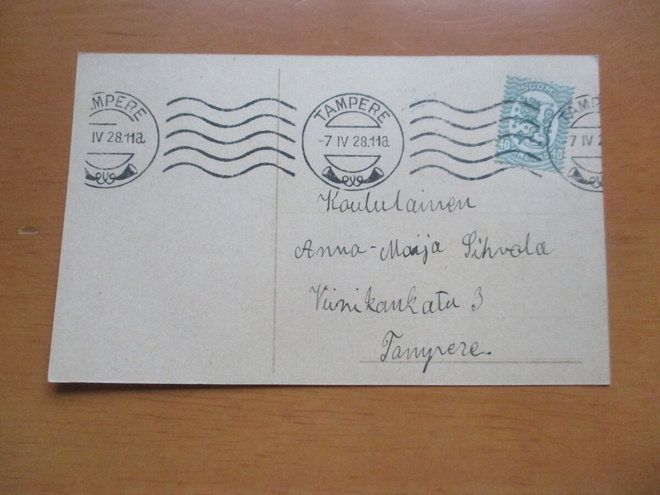 TAMPERE
IV 28.11a.
TAMPERE
-7 IV 28.11a.
SUOMI
40 40
TAMP
-7 IV 2
Koululainen
Anna-Maija Sihvola
Viinikankatu 3
Tampere.